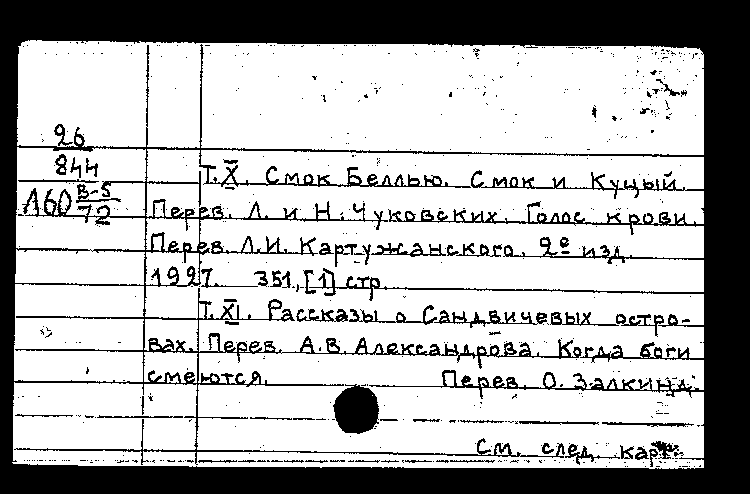 26
844
Л60 В-5
72
Т. X. Смок Беллью. Смок и Куцый.
Перев. Л. и Н. Чуковских. Голос крови.
Перев. Л.И. Картужанского. 2е изд.
1927. 351,[1] стр.
Т. XI. Рассказы о Сандвичевых остро-
вах. Перев. А.В. Александрова. Когда боги
смеются. Перев. О. Залкинд.
См. след. карт.